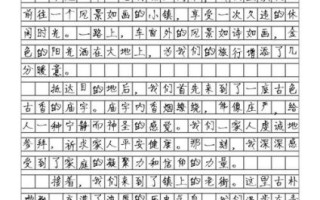 前往一个风景如画的小镇，享受一次久违的休
闲时光。一路上，车窗外的风景如诗如画，金
色的阳光洒在大地上，为我们的旅行增添了几
分暖意。
抵达目的地后，我们首先来到了一座古色
古香的庙宇。庙宇内香烟缭绕，佛像庄严，给
人一种宁静而神圣的感觉。我们一家人虔诚地
参拜，祈求家人平安健康。那一刻，我深深感
受到了家庭的凝聚力和信仰的力量。
接着，我们来到了镇上的老街。这里古朴